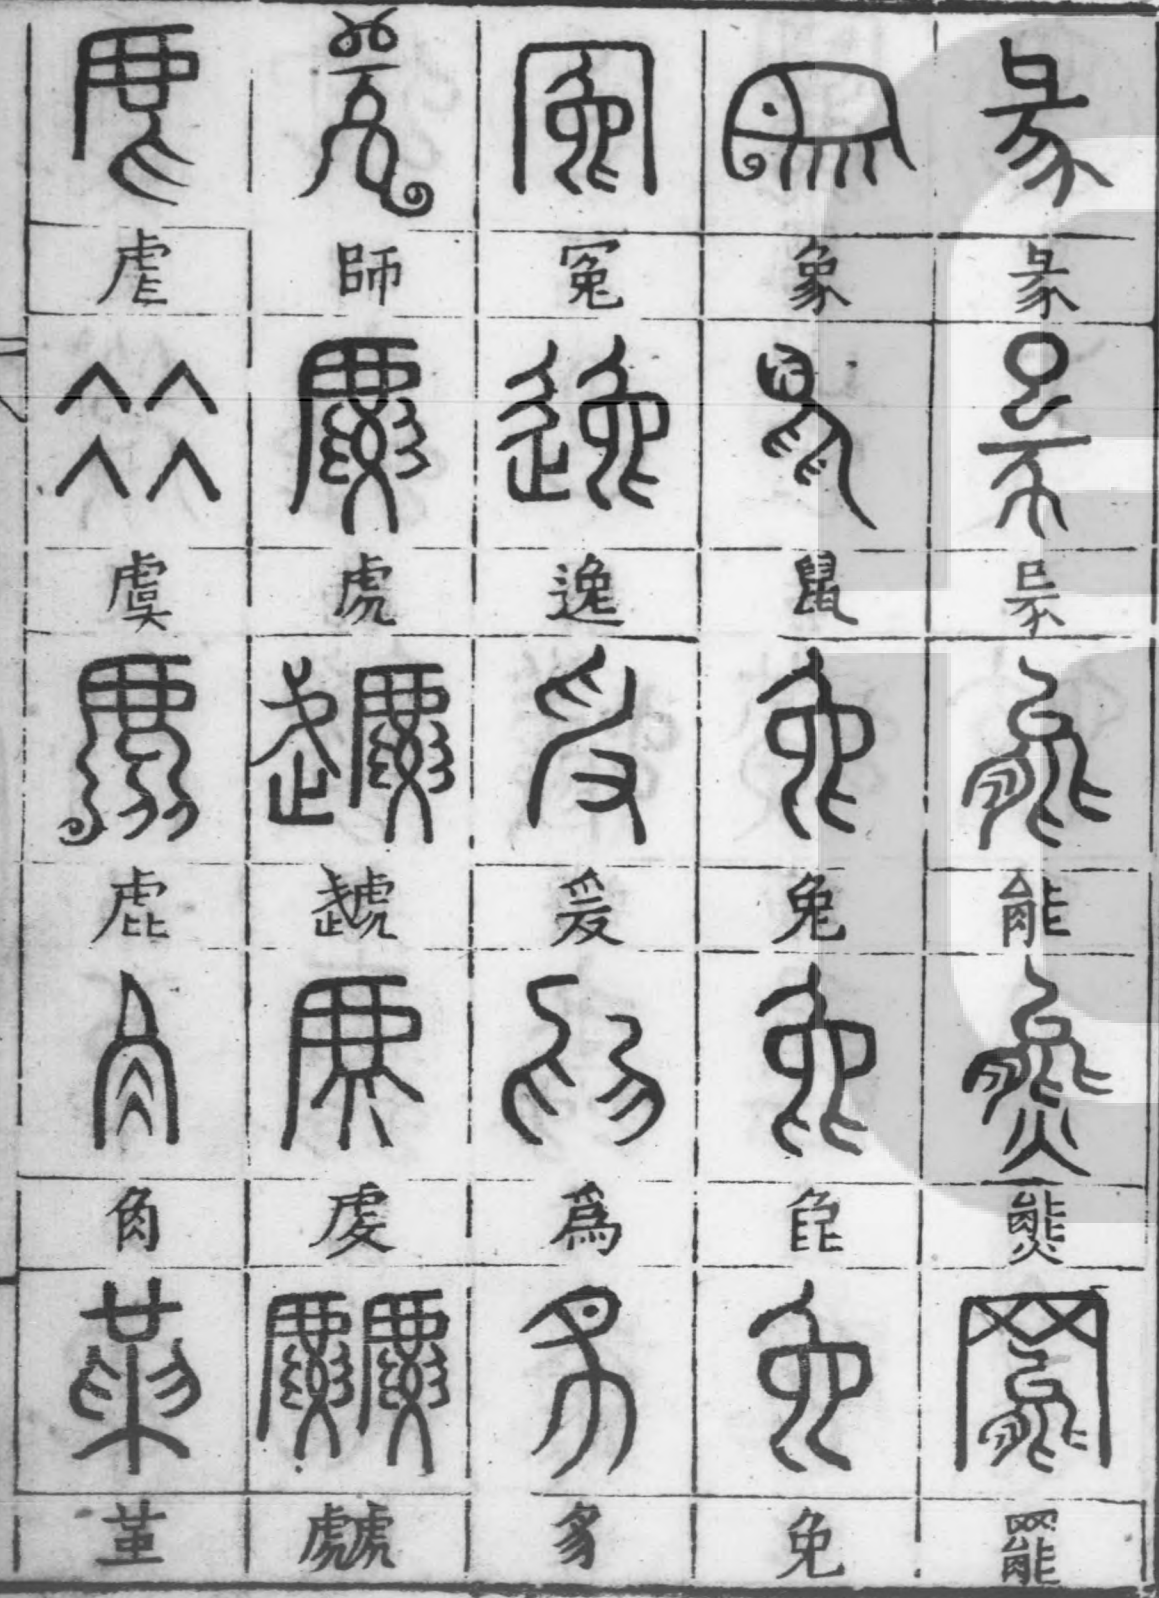 彖
能
熊
羆
象
鼠
兔
㲋
免
冤
逸
爰
爲
豸
師
虎
虔
虤
虐
虞
角
革